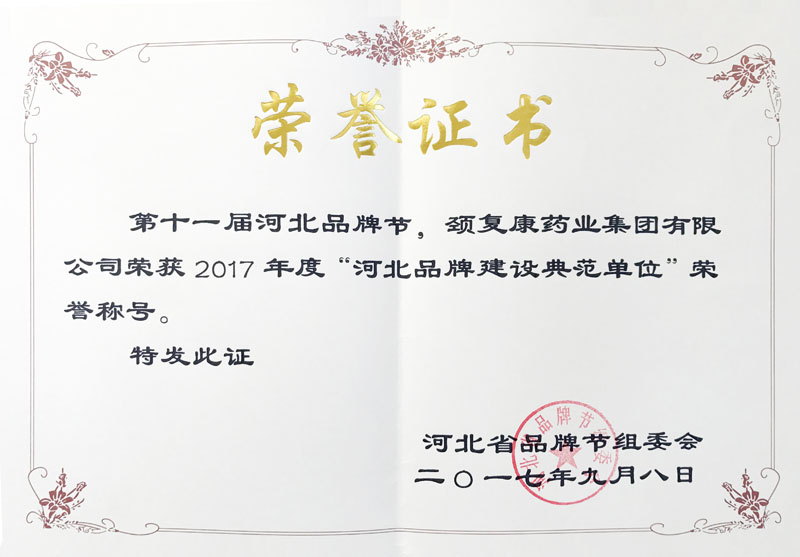 荣誉证书
第十一届河北品牌节，颈复康药业集团有限
公司荣获 2017 年度“河北品牌建设典范单位”荣
誉称号。
特发此证
河北省品牌节组委会
二〇一七年九月八日
河北省品牌节组委会